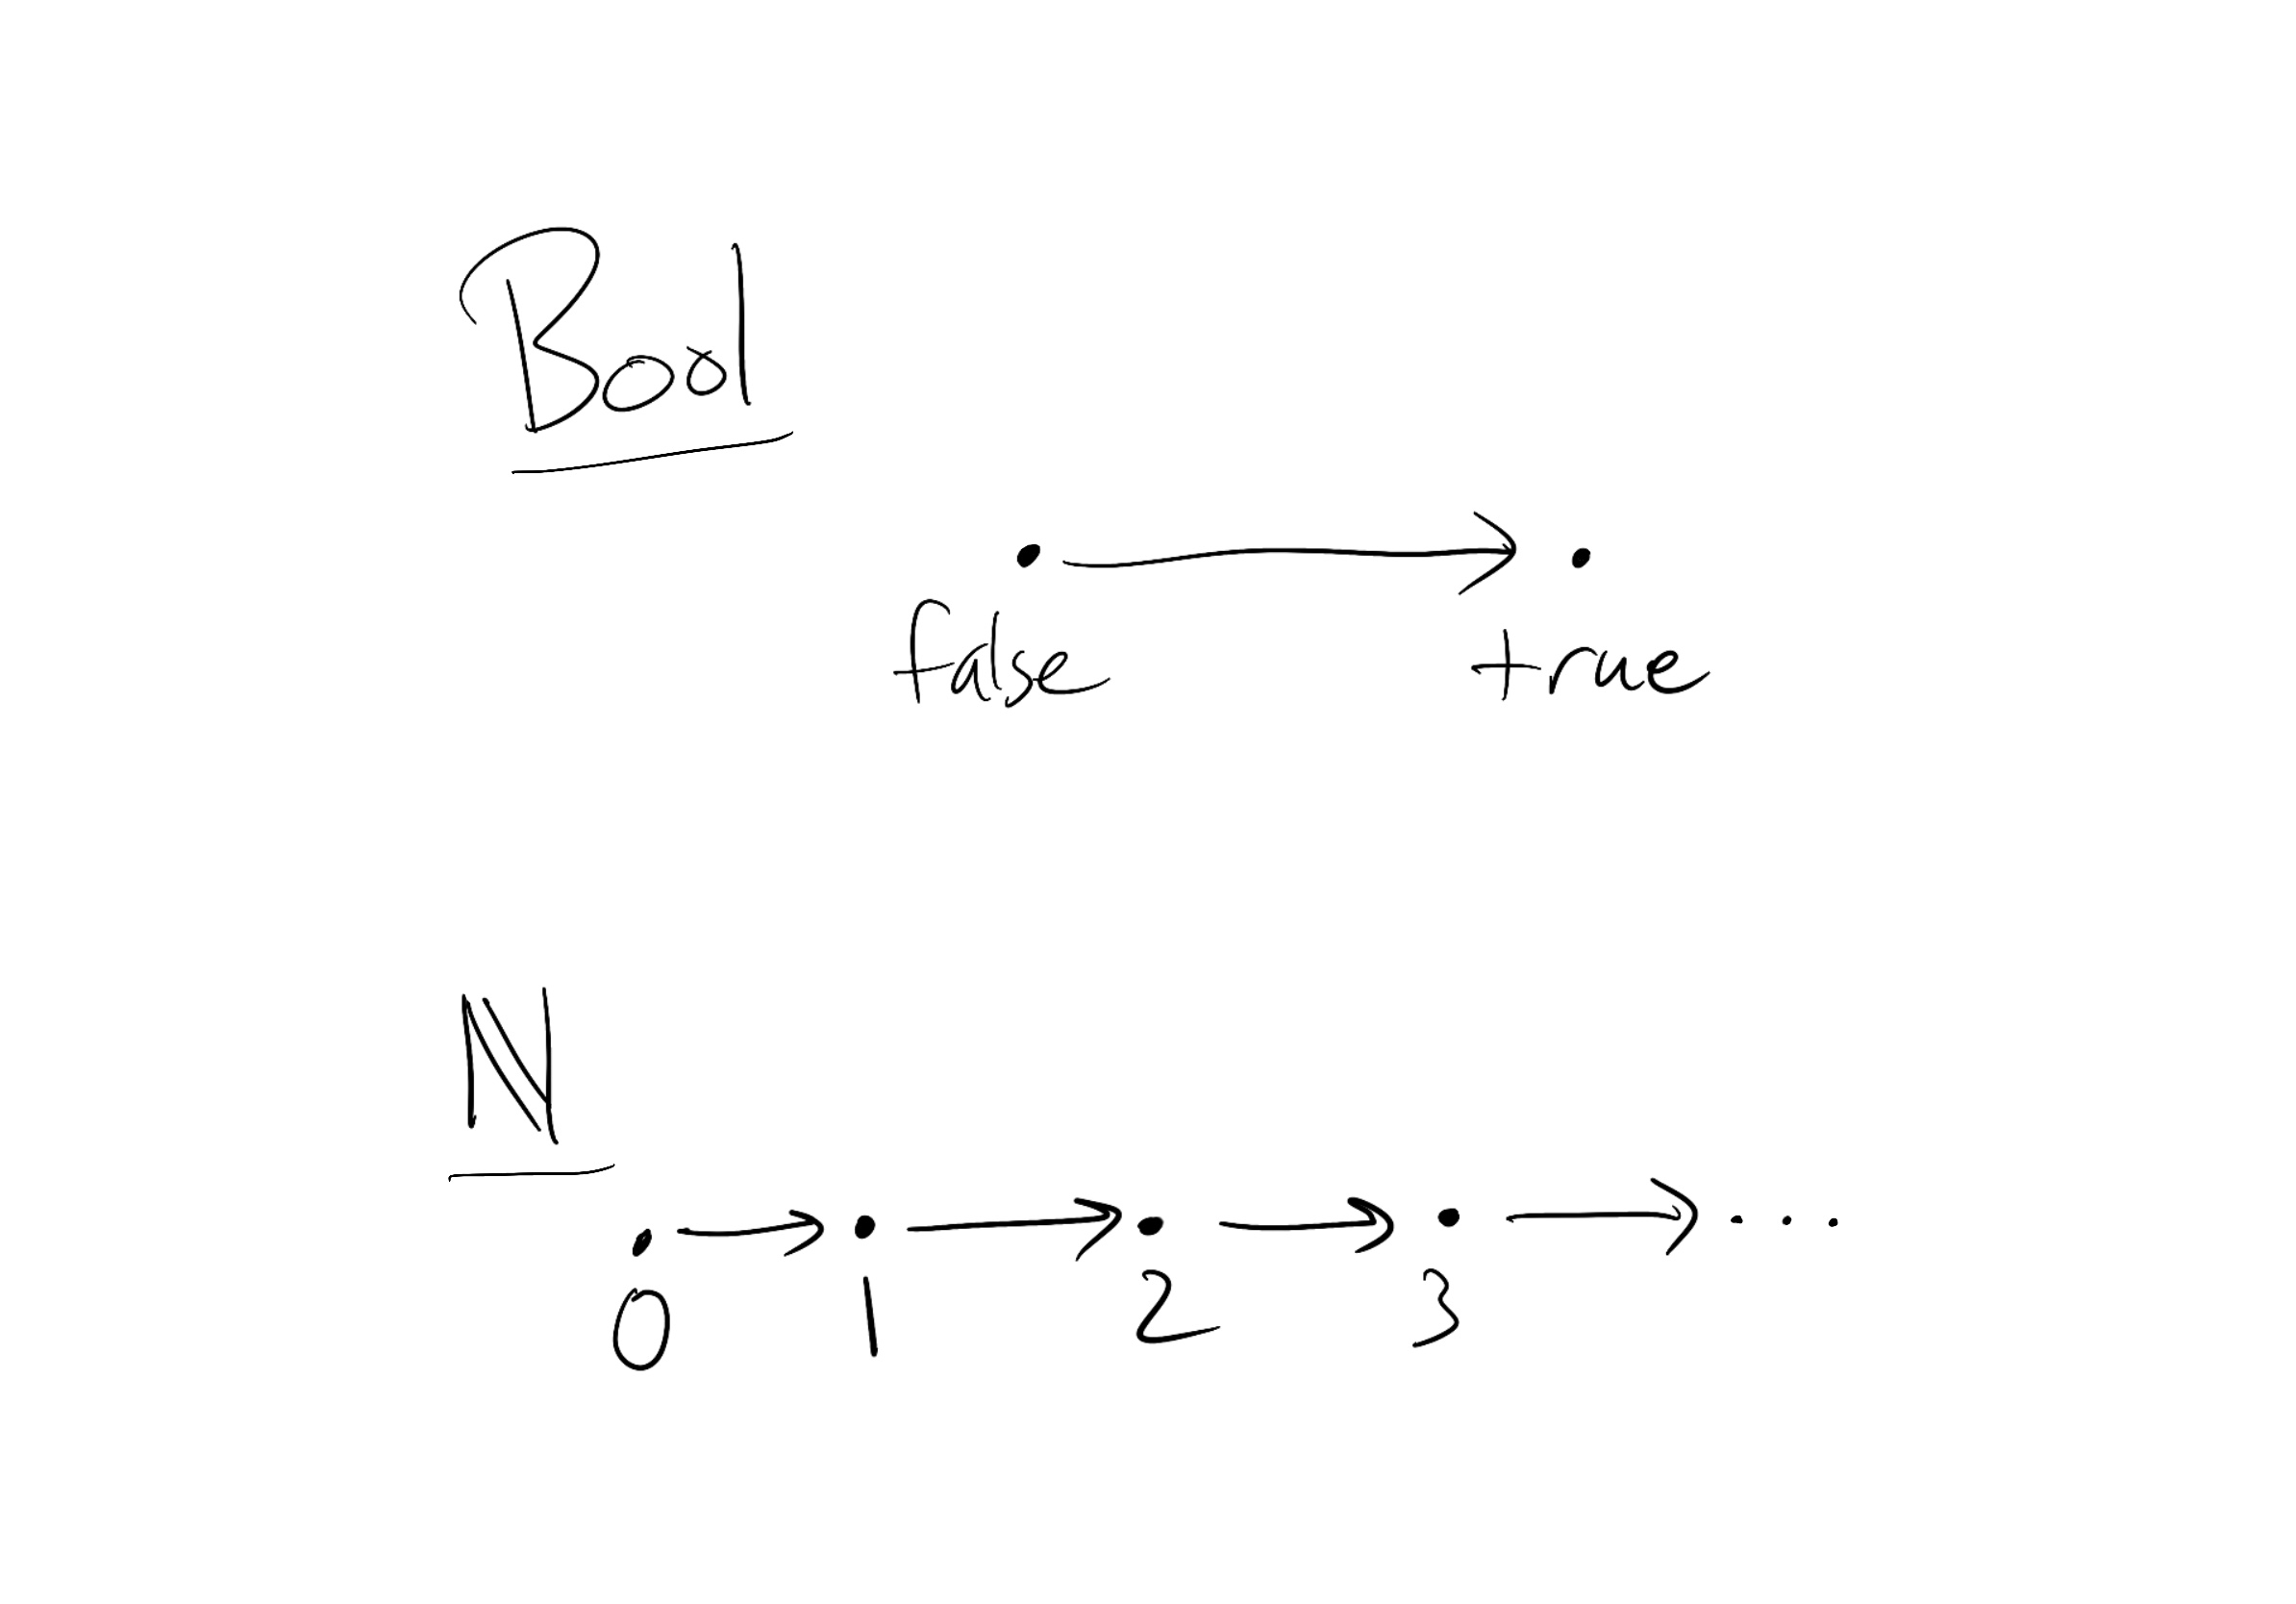 Bool
false true
ℕ
0 1 2 3 ...